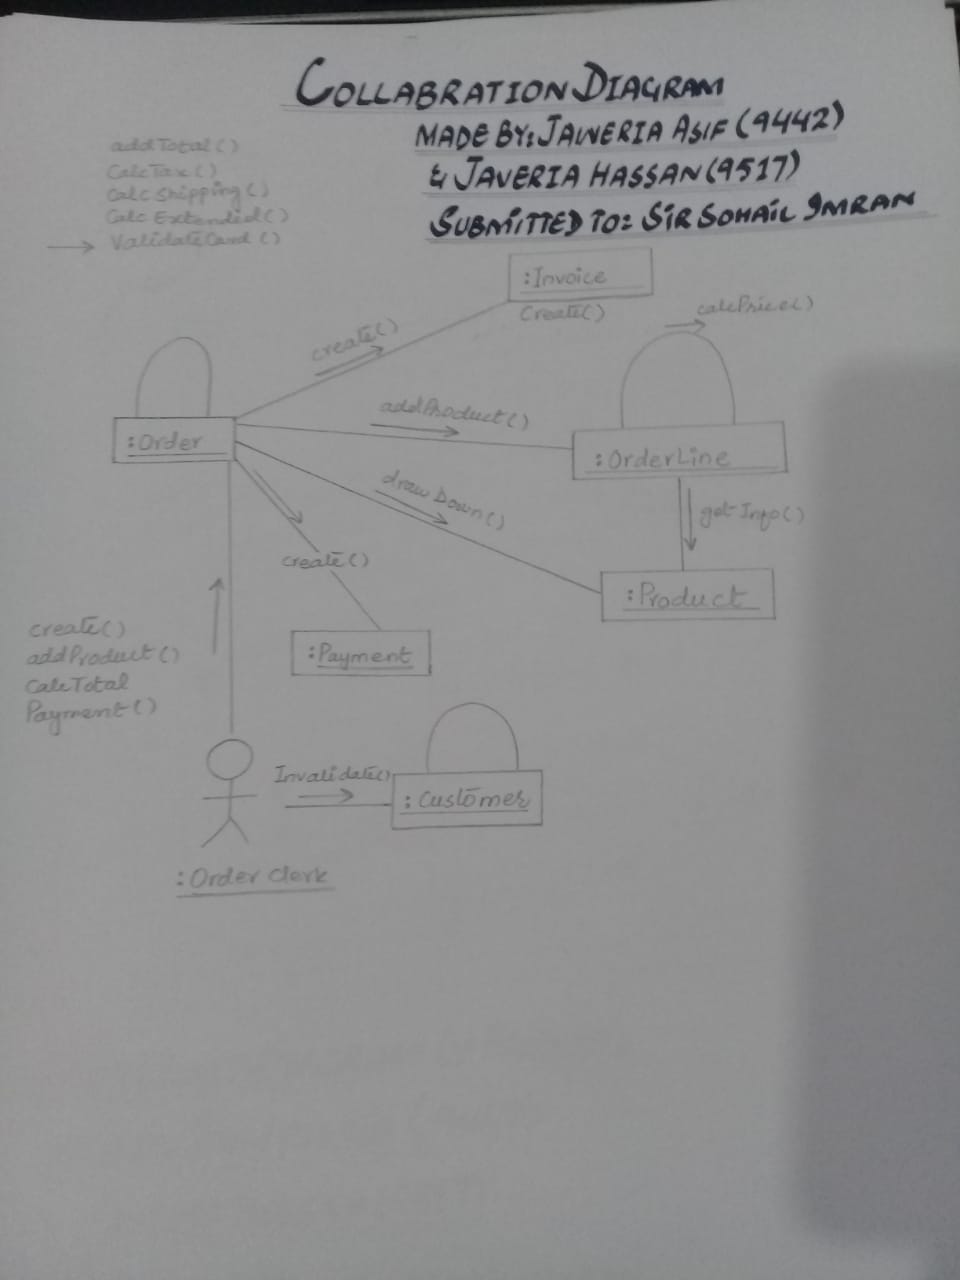 COLLABRATION DIAGRAM
MADE BY: JAWERIA ASIF (9442)
& JAVERIA HASSAN (9517)
SUBMITTED TO: SIR SOHAIL IMRAN
addTotal()
CalcTax()
Calc Shipping()
Calc Extended()
ValidateCard()
:Invoice
Create()
create()
calcPrice()
addProduct()
:Order
:OrderLine
drawDown()
getInfo()
create()
:Product
create()
addProduct()
CalcTotal
Payment()
:Payment
Invalidate()
:Customer
:Order Clerk